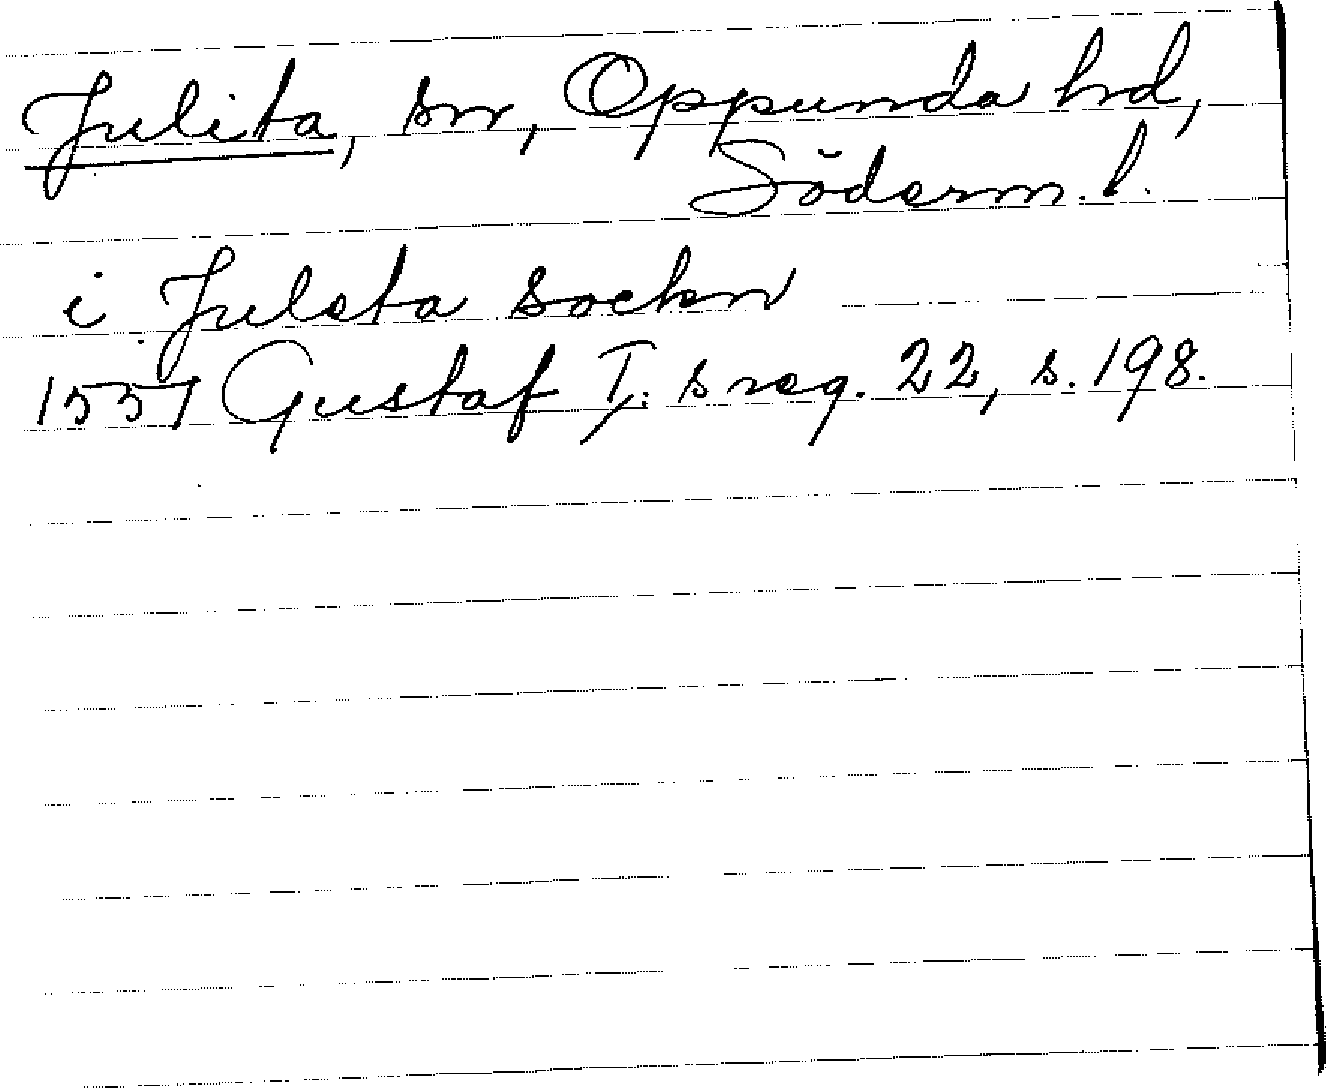 Julita, sn, Oppunda hd,
Söderm. l.
i Juleta sockn
1557 Gustaf I:s reg. 22, s. 198.